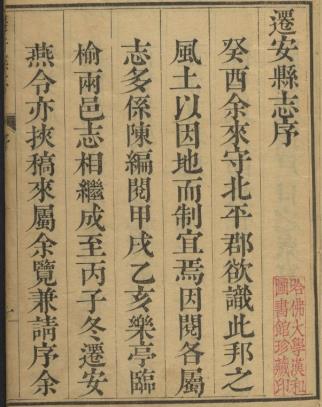 遷安縣志序
癸酉余來守北平郡欲識此邦之
風土以因地而制宜焉因閱各屬
志多係陳編閱甲戌乙亥樂亭臨
榆兩邑志相繼成至丙子冬遷安
燕令亦挾稿來屬余覽兼請序余
哈佛大學漢和
圖書館珍藏印